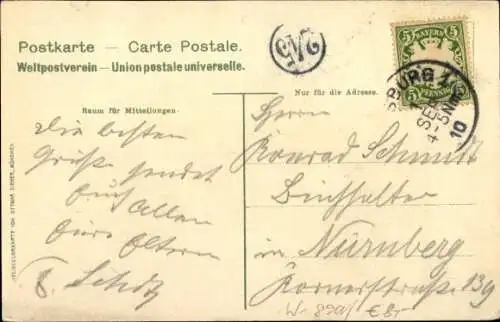 Postkarte — Carte Postale.
Weltpostverein — Union postale universelle.
Nur für die Adresse.
Raum für Mitteilungen.
BAYERN
5 5
PFENNIG
BURG
4 SEP
5 Nm
10
Die besten
Grüße sendet
Euch allen
Eure Eltern
Herrn
Konrad Schmitt
Buchhalter
in Nürnberg